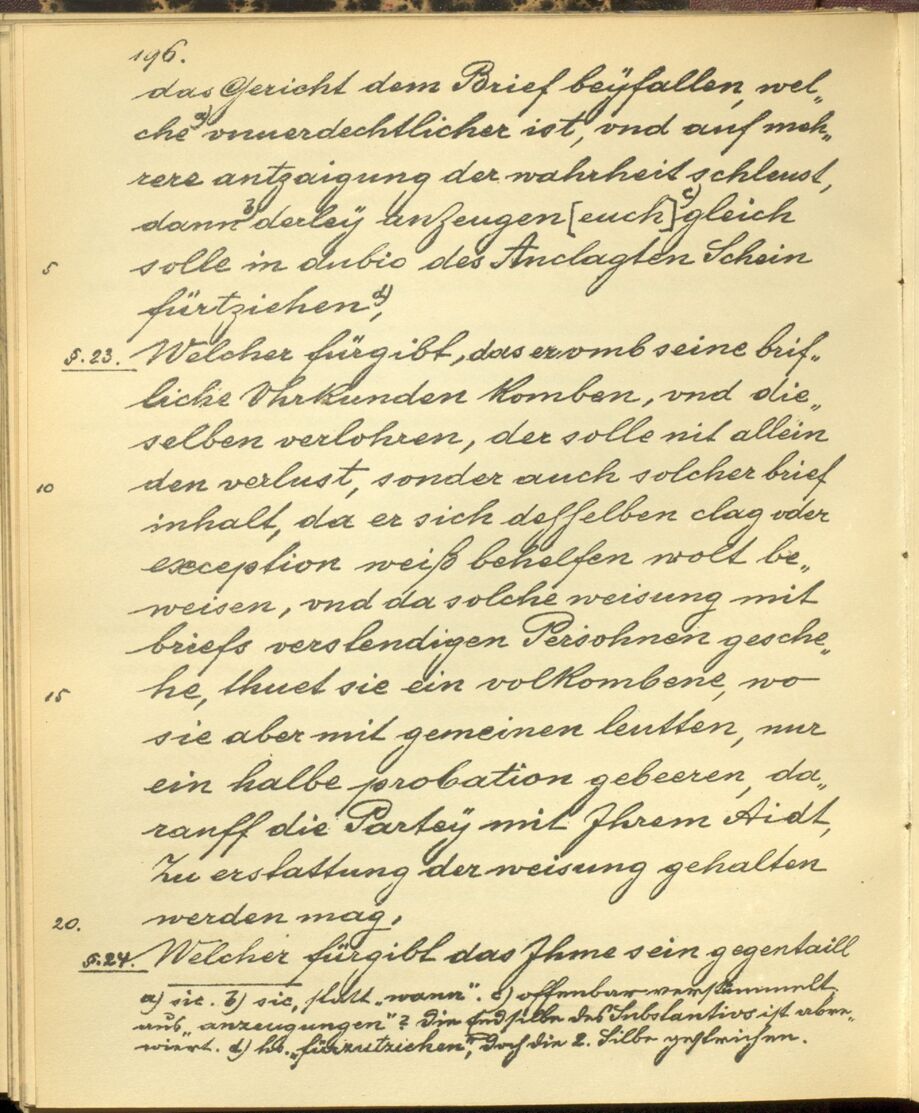 196.
das Gericht dem Brief beyfallen, wel„
che a) vnuerdechtlicher ist, vnd auf meh„
rere antzaigung der wahrheit schleust,
dann b) derleÿ anzeugen [euch] c) gleich
5 solle in dubio des Anclagten Schein
fürtziehen d),
§. 23. Welcher fürgibt, das er vmb seine brif„
liche Vhrkunden komben, vnd die„
selben verlohren, der solle nit allein
10 den verlust, sonder auch solcher brief
inhalt, da er sich desselben clag oder
exception weiß behelfen wolt be„
weisen, vnd da solche weisung mit
briefs verstendigen Persohnen gesche„
15 he, thuet sie ein volkombene, wo
sie aber mit gemeinen leutten, nur
ein halbe probation gebeeren, da„
rauff die Parteÿ mit Ihrem Aidt,
Zu erstattung der weisung gehalten
20. werden mag,
§. 24. Welcher fürgibt das Ihme sein gegentaill
a) sic. b) sic, statt „wann". c) offenbar verstümmelt
aus „anzeugungen"? Die Endsilbe des Substantivs ist abre„
wiert. d) hs. „fürzutziehen", doch die 2. Silbe gestrichen.